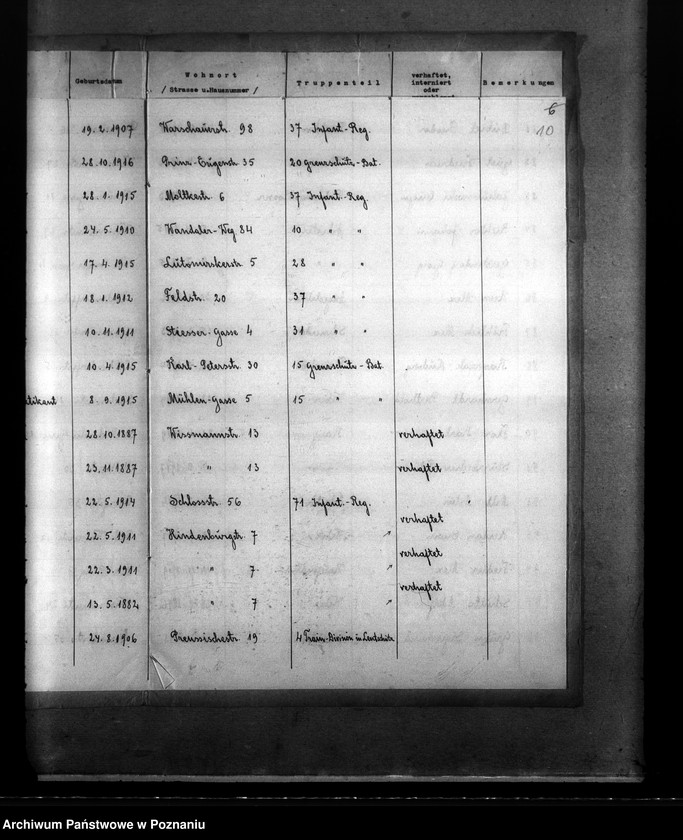 Geburtsdatum Wohnort / Strasse u.Hausnummer / Truppenteil verhaftet, interniert oder Bemerkungen
6
10
19.2.1907 Warschauerstr. 98 37 Infant.-Reg.
28.10.1916 Prinz-Eugenstr. 35 20 Grenzschütz-Bat.
28.1.1915 Moltkestr. 6 37 Infant.-Reg.
24.5.1910 Wandaler-Weg 84 10 " "
17.4.1915 Lutomirskerstr. 5 28 " "
18.1.1912 Feldstr. 20 37 " "
10.11.1911 Gasse 4 31 " "
10.4.1915 Karl-Peterstr. 30 15 Grenzschütz-Bat.
tikant 8.9.1915 Mühlen-Gasse 5 15 " "
28.10.1887 Wissmannstr. 13 verhaftet
23.11.1887 " 13 verhaftet
22.5.1914 Schlossstr. 56 71 Infant.-Reg.
verhaftet
22.5.1911 Hindenburgstr. 7
verhaftet
22.3.1911 " 7
verhaftet
13.5.1882 " 7
24.8.1906 Preussischestr. 19 4 Train-Division in
Archiwum Państwowe w Poznaniu